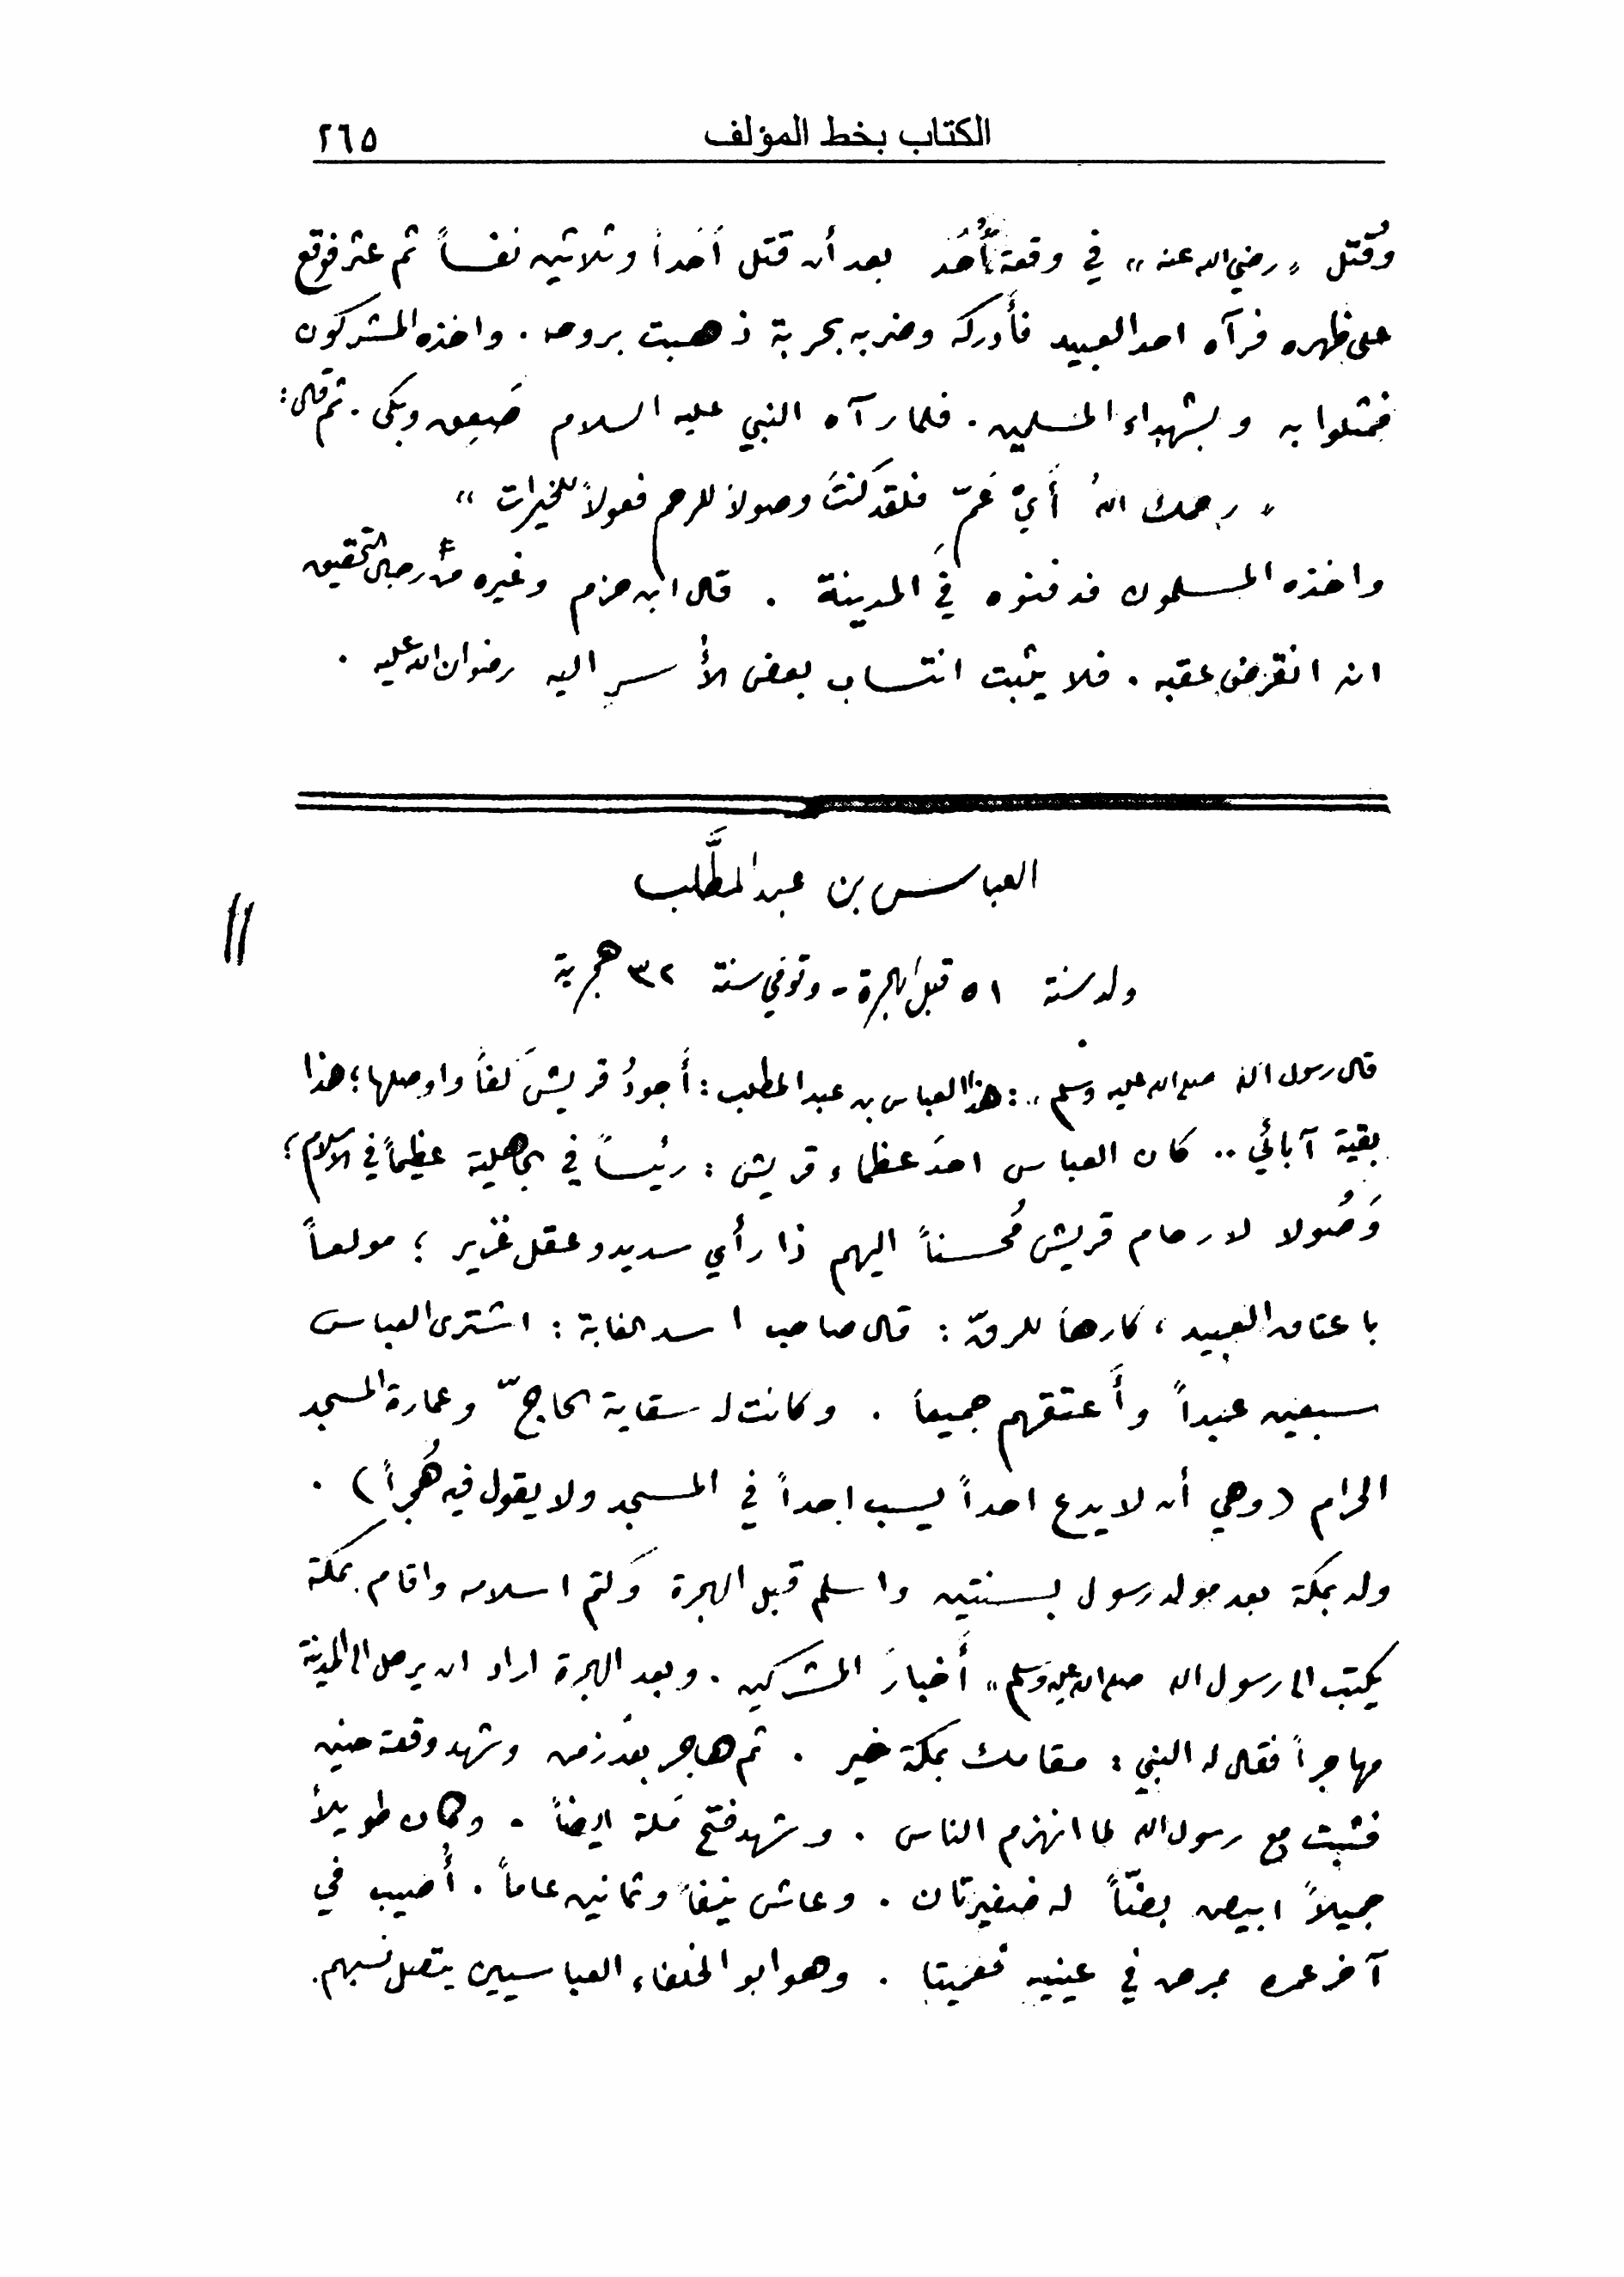 الكتاب بخط المؤلف ٢٦٥
وقُتل «رضي الله عنه» في وقعة أُحُد بعد أن قتل أحَداً وثلاثين نفساً ثم عثر فوقع
على ظهره فرآه احد العبيد فأدركه وضربه بحربة ذهبت بروحه . واخذه المشركون
فمثلوا به وبشهداء المسلمين . فلما رآه النبي عليه السلام صَعِق وبكى . ثم قال :
« رحمك اللهُ أيْ عَمّ فلقد كنتَ وصولاً للرحم فعولاً للخيرات »
واخذه المسلمون فدفنوه في المدينة . قال ابن حزم وغيره من رجال التحقيق
انه انقرض عقبه . فلا يثبت انتساب بعض الأسر اليه رضوان الله عليه .
العباس بن عبد المطَّلب
ولد سنة ٥١ قبل الهجرة - وتوفي سنة ٣٢ هجرية
//
قال رسول الله صلى الله عليه وسلم» : هذا العباس بن عبد المطلب : أَجودُ قريش كفاً واوصلها ؛ هذا
بقية آبائي .. كان العباس احدَ عظماء قريش : رئيساً في الجاهلية عظيماً في الاسلام ؛
وَصُولا لارحام قريش مُحسناً اليهم ذا رأي سديد وعقل غزير ؛ مولعاً
باعتاق العبيد ، كارهاً للرقّ : قال صاحب اسد الغابة : اشترى العباس
سبعين عبداً وأَعتقهم جميعاً . وكانت له سقاية الحاجّ وعمارة المسجد
الحرام (وهي أن لا يدع احداً يسب احداً في المسجد ولا يقول فيه هُجراً) .
ولد بمكة بعد مولد رسول بسنتين واسلم قبل الهجرة وكتم اسلامه واقام بمكة
يكتب الى رسول الله صلى الله عليه وسلم» أَخبارَ المشركين . وبعد الهجرة اراد ان يرحل الى المدينة
مهاجراً فقال له النبي : مقامك بمكة خير . ثم هاجر بعد زمن وشهد وقعة حنين
فثبت مع رسول الله لما انهزم الناس . وشهد فتح مكة ايضاً . وكان طويلاً
جميلاً ابيض بضّاً له ضفيرتان . وعاش نيفاً وثمانين عاماً . أُصيب في
آخر عمره بمرض في عينيه فعميتا . وهو ابو الخلفاء العباسيين يتصل نسبهم .